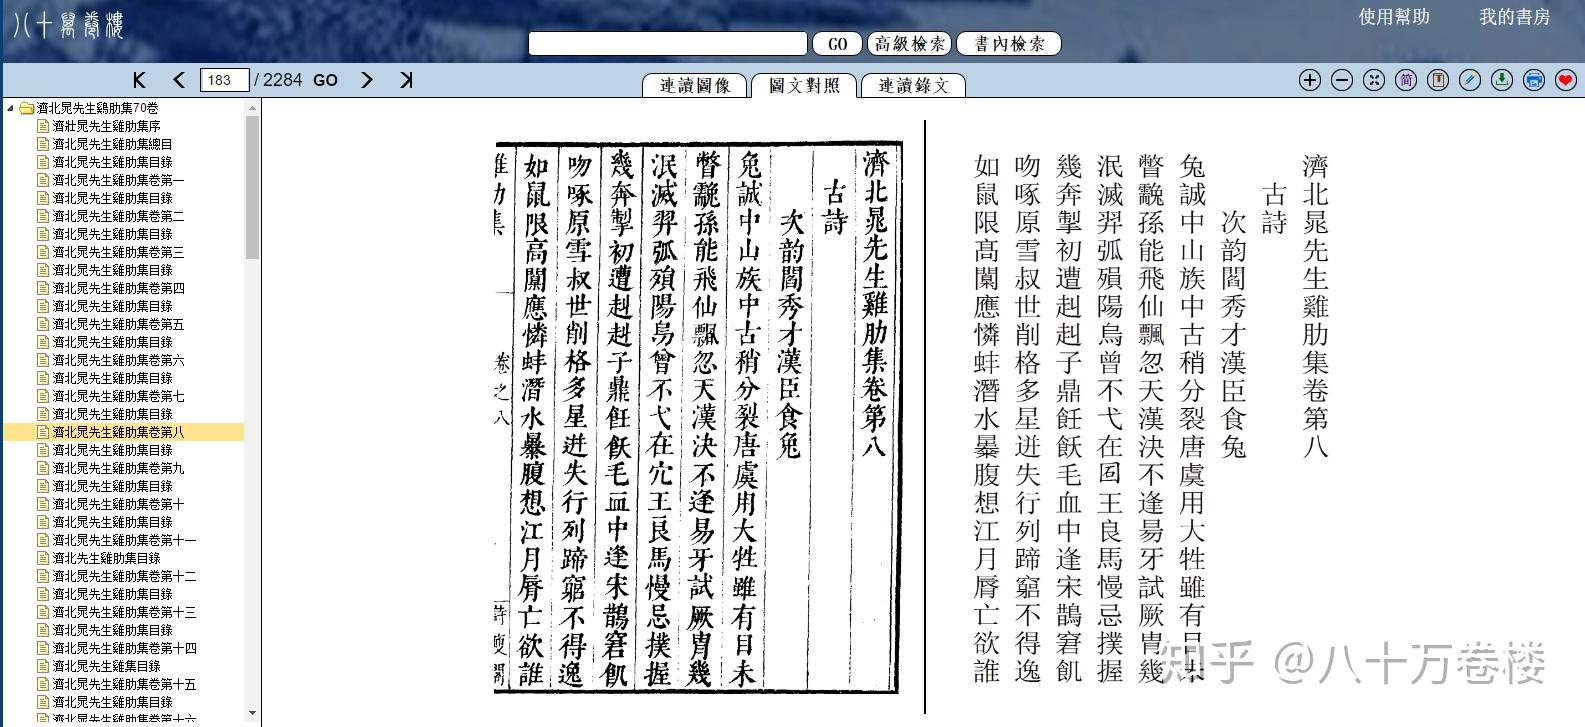 八十萬卷樓
使用幫助
我的書房
GO
高級檢索
書內檢索
183 / 2284 GO
連讀圖像
圖文對照
連讀錄文
簡
濟北晁先生鷄肋集70卷
濟北晁先生雞肋集序
濟北晁先生雞肋集總目
濟北晁先生雞肋集目錄
濟北晁先生雞肋集卷第一
濟北晁先生雞肋集目錄
濟北晁先生雞肋集卷第二
濟北晁先生雞肋集目錄
濟北晁先生雞肋集卷第三
濟北晁先生雞肋集目錄
濟北晁先生雞肋集卷第四
濟北晁先生雞肋集目錄
濟北晁先生雞肋集卷第五
濟北晁先生雞肋集目錄
濟北晁先生雞肋集卷第六
濟北晁先生雞肋集目錄
濟北晁先生雞肋集卷第七
濟北晁先生雞肋集目錄
濟北晁先生雞肋集卷第八
濟北晁先生雞肋集目錄
濟北晁先生雞肋集卷第九
濟北晁先生雞肋集目錄
濟北晁先生雞肋集卷第十
濟北晁先生雞肋集目錄
濟北晁先生雞肋集卷第十一
濟北先生雞肋集目錄
濟北晁先生雞肋集卷第十二
濟北晁先生雞肋集目錄
濟北晁先生雞肋集卷第十三
濟北晁先生雞肋集目錄
濟北晁先生雞肋集卷第十四
濟北晁先生雞集目錄
濟北晁先生雞肋集卷第十五
濟北晁先生雞肋集目錄
濟北晁先生雞肋集卷第十六
濟北晁先生雞肋集卷第八
古詩
次韵閻秀才漢臣食兔
兔誠中山族中古稍分裂唐虞用大牲雖有目未
瞥䨲孫能飛仙飄忽天漢決不逢易牙試厥胄幾
泯滅羿弧殞陽烏曾不弋在穴王良馬慢忌撲握
幾奔掣初遭赳赳子鼎飪飫毛血中逢宋鵲窘飢
吻啄原雪叔世削格多星迸失行列蹄窮不得逸
如鼠限高闑應憐蚌潛水暴腹想江月脣亡欲誰
雞肋集
卷之八
詩瘦閣
濟北晁先生雞肋集卷第八
古詩
次韵閻秀才漢臣食兔
兔誠中山族中古稍分裂唐虞用大牲雖有目未
瞥䨲孫能飛仙飄忽天漢決不逢昜牙試厥胄幾
泯滅羿弧殞陽烏曾不弋在囘王良馬慢忌撲握
幾奔掣初遭赳赳子鼎飪飫毛血中逢宋鵲窘飢
吻啄原雪叔世削格多星迸失行列蹄窮不得逸
如鼠限髙闑應憐蚌潛水暴腹想江月脣亡欲誰
知乎 @八十万卷楼